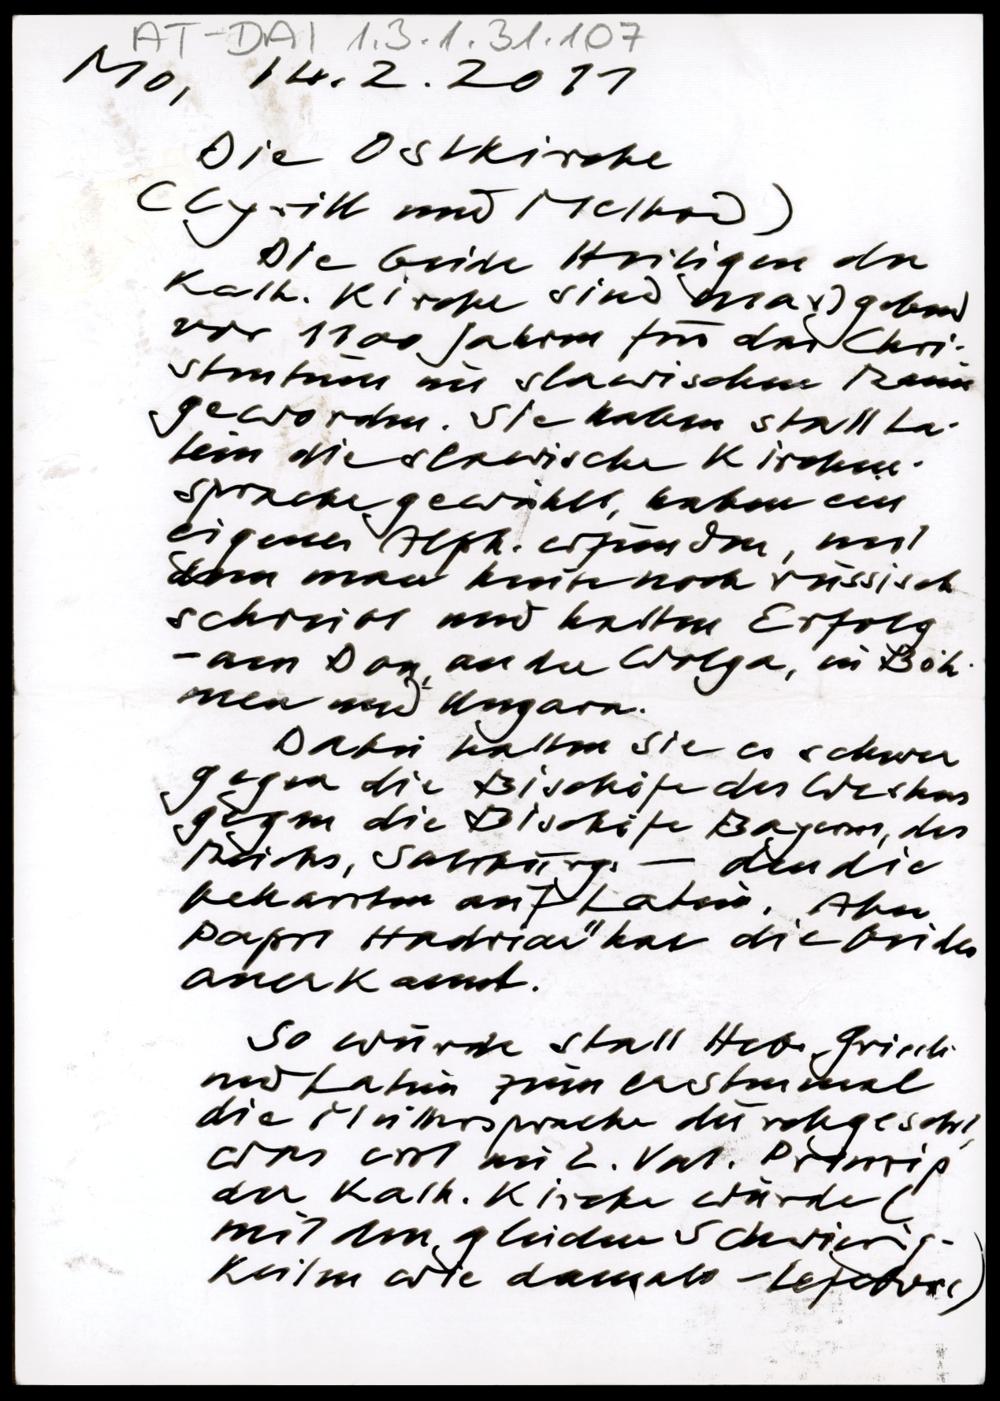 AT-DAI 1.3.1.31.107
Mo, 14.2.2011
Die Ostkirche
(Cyrill und Method)
Die beiden Heiligen der
Kath. Kirche sind massgebend
vor 1100 Jahren für das Chri-
stentum im slawischen Raum
geworden. Sie haben statt La-
tein die slawische Kirchen-
sprache gewählt, haben ein
eigenes Alph. erfunden, mit
dem man heute noch russisch
schreibt und hatten Erfolg
- am Don, an der Wolga, in Böh-
men und Ungarn.
Dabei hatten sie es schwer
gegen die Bischöfe des Westens
gegen die Bischöfe Bayerns, des
Reichs, Salzburgs — denn die
beharrten auf Latein. Aber
Papst Hadrian II hat die beiden
anerkannt.
So wurde statt Hebr. Griech.
und Latein zum erstenmal
die Muttersprache durchgesetzt,
was erst im 2. Vat. Prinzip
der Kath. Kirche wurde (
mit den gleichen Schwierig-
keiten wie damals - Lefebvre)